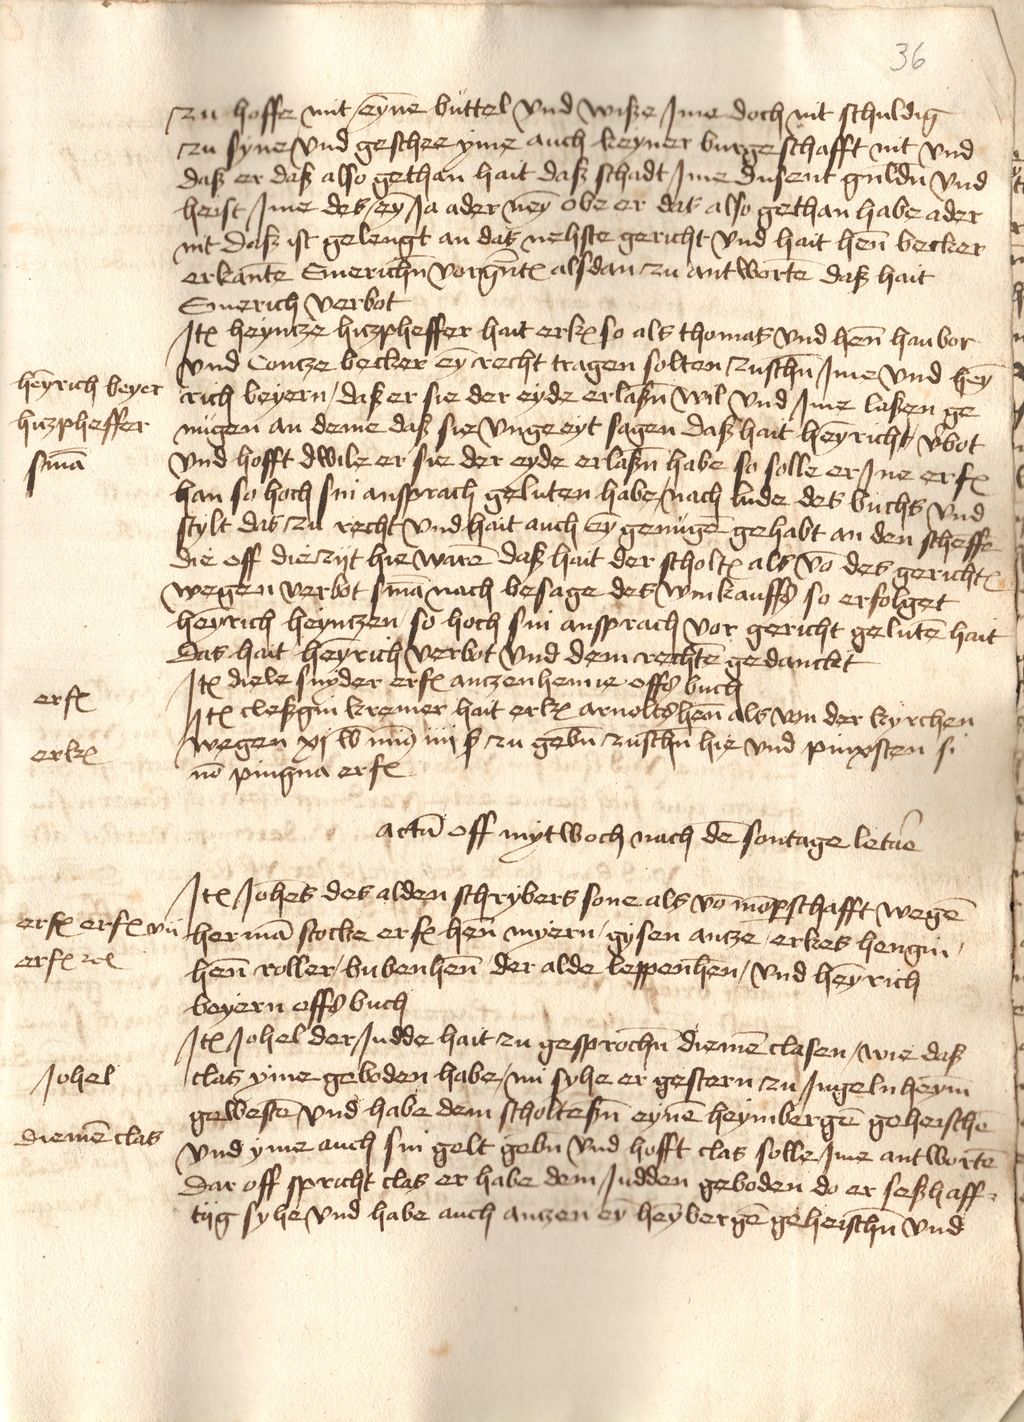 36
zu hoffe mit eyne buttel vnd wisze Jme doch nit schuldig
zu syne vnd geschee yme auch keyner burgeschafft nit vnd
dasz er dasz also gethan hait dasz schadt Jme dusent guldn vnd
heist Jme des ey Ja ader ney obe er das also gethan habe ader
nit dasz ist gelengt an das nehste gericht vnd hait hen becker
erkante Emerichn vorgnt alsdan zu antworte dasz hait
Emerich verbot
Jt heyncze hiczpheffer hait erk so als thomas vnd hen haubor
vnd Contze becker ey recht tragen solten zuschn Jme vnd hey
heyrich beyer
rich beyern / dasz er sie der eyde erlaszn wil vnd Jme laszen ge
hiczpheffer
nugen an deme dasz sie vngeeyt sagen dasz hait heyricht vbot
sma
vnd hofft dwile er sie der eyde erlaszn habe so solle er Jne erf
han so hoch sin ansprach geluten habe / nach lude des buchs vnd
stylt das zu recht vnd hait auch ey genuge gehabt an den scheffe
die off die zijt hie ware dasz hait der scholt als vo des gericht
wegen verbot sma nach besage des winkauffs so erfolget
heyrich heyntzen so hoch sin ansprach vor gericht gelute hait
Das hait heyrich verbot vnd dem rechte gedanckt
Jt diele snyder erf anczenhenne offs buch
erf
Jt cleszgin kremer hait erk arnolts hen als von der kyrchen
wegen xj lb mi9 iiij ß zu gebn zuschn hie vnd pinxsten si
erk
no pingna erf
actu off mytwoch nach de sontage letae
Jt Johes des alden schrybers sone als vo mopschafft wege
erf erf vn
herma stocke erf hen myern / gysen ancze / erkes hengin /
erf
hen roller / bubenhen der alde leppenhen / vnd heyrich
beyern offs buch
Jt Johel der Judde hait zu gesprochn dieme clasen / wie dasz
Johel
clas yme geboden habe / nu syhe er gestern zu Jngelnheym
geweste vnd habe dem scholteszn eyne heymberge geheische
dieme clas
vnd yme auch sin gelt gebn vnd hofft clas solle Jme antworte
Dar off spricht clas er habe dem Judden geboden do er seszhaff-
tig syhe vnd habe auch anczen ey heyberge geheischn vnd